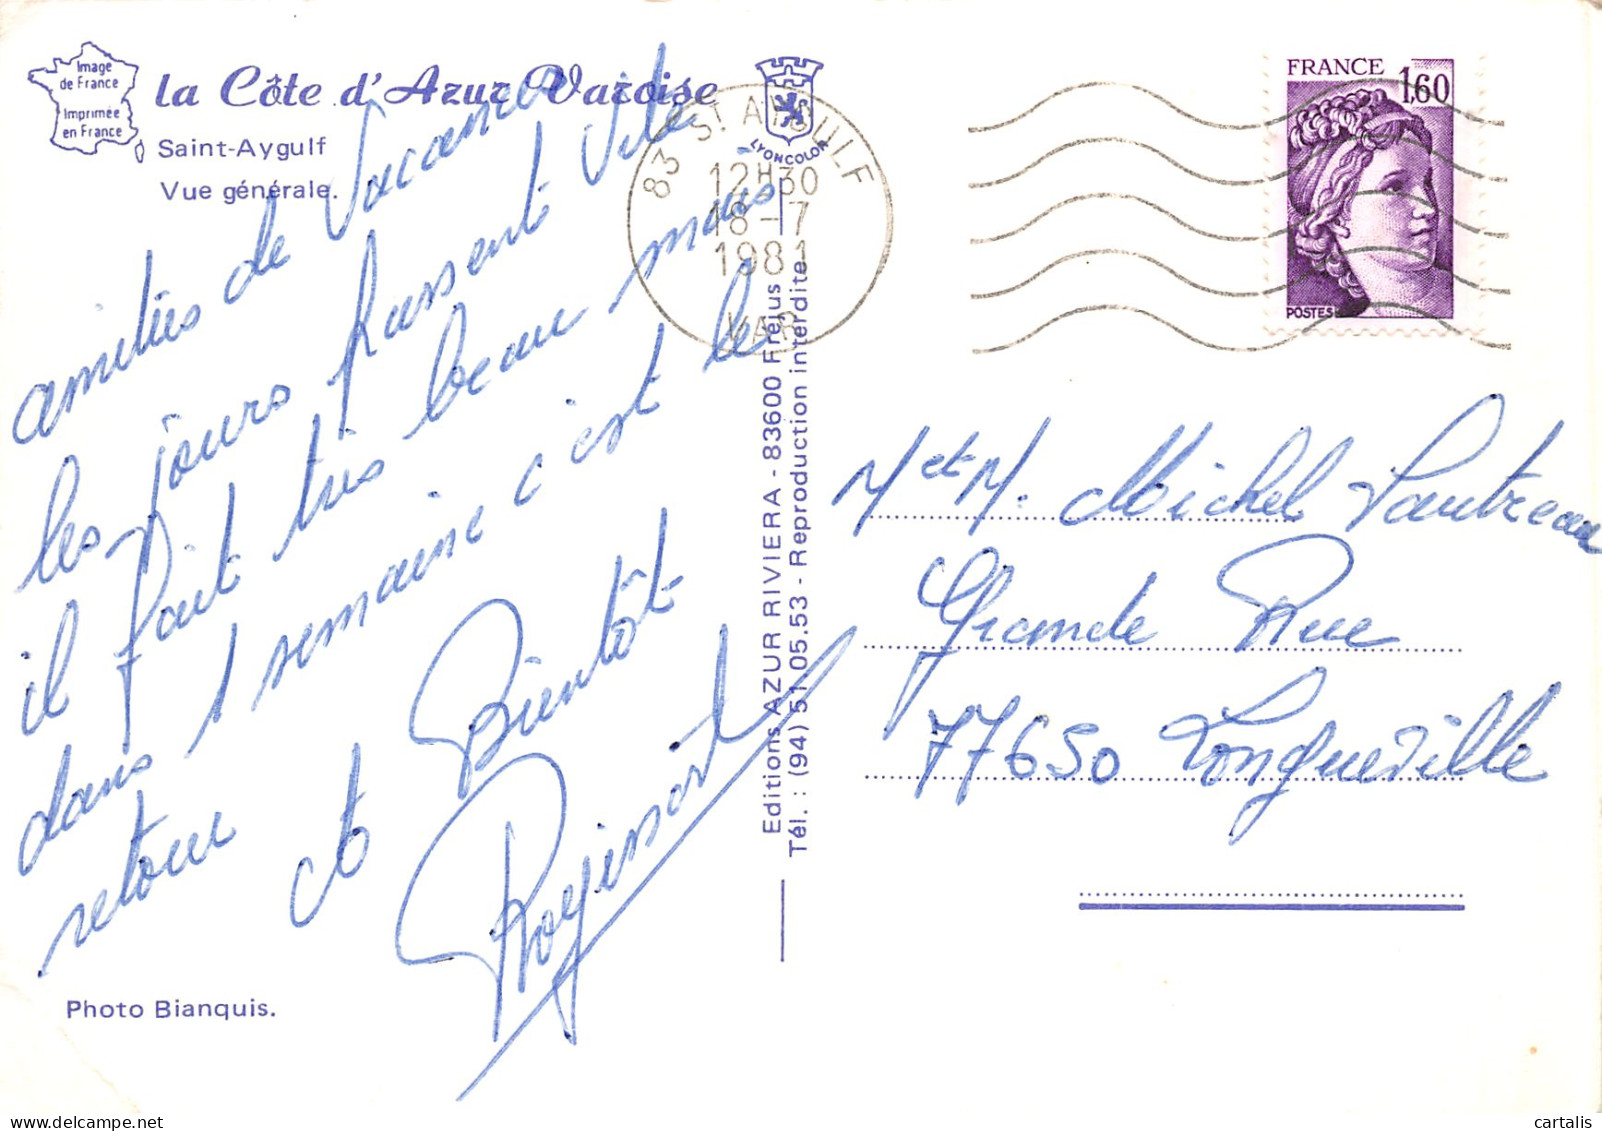 Image
de France
Imprimée
en France
la Côte d'Azur Varoise
Saint-Aygulf
Vue générale.
LYONCOLOR
83 ST AYGULF
12H30
18-7
1981
VAR
FRANCE
1,60
POSTES
amitiés de Vacances
les jours passent vite
il fait très beau mais
dans 1 semaine c'est le
retour
et Bientôt
M et M. Michel Vautreau
Grande Rue
77650 Longueville
Editions AZUR RIVIERA - 83600 Fréjus
Tél. : (94) 51.05.53 - Reproduction interdite
Photo Bianquis.
cartalis
www.delcampe.net